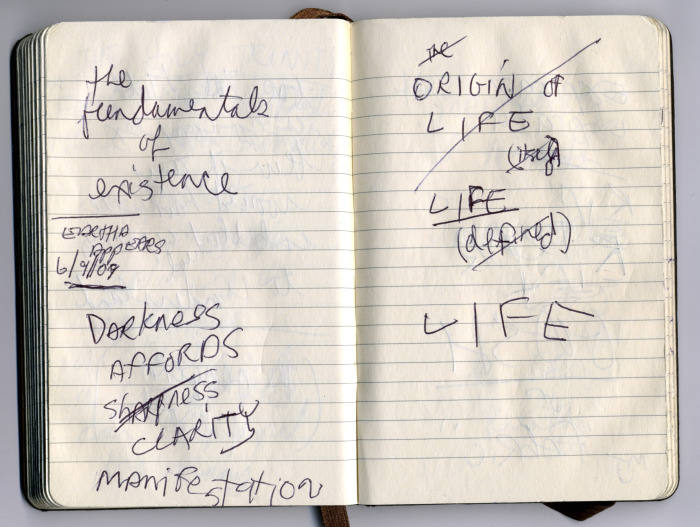 the
fundamentals
of
existence
EARTHA
APPEARS
6/9/09
DARKNESS
AFFORDS
SHARPNESS
CLARITY
MANIFESTATION
THE
ORIGIN of
LIFE
LIFE
(defined)
LIFE